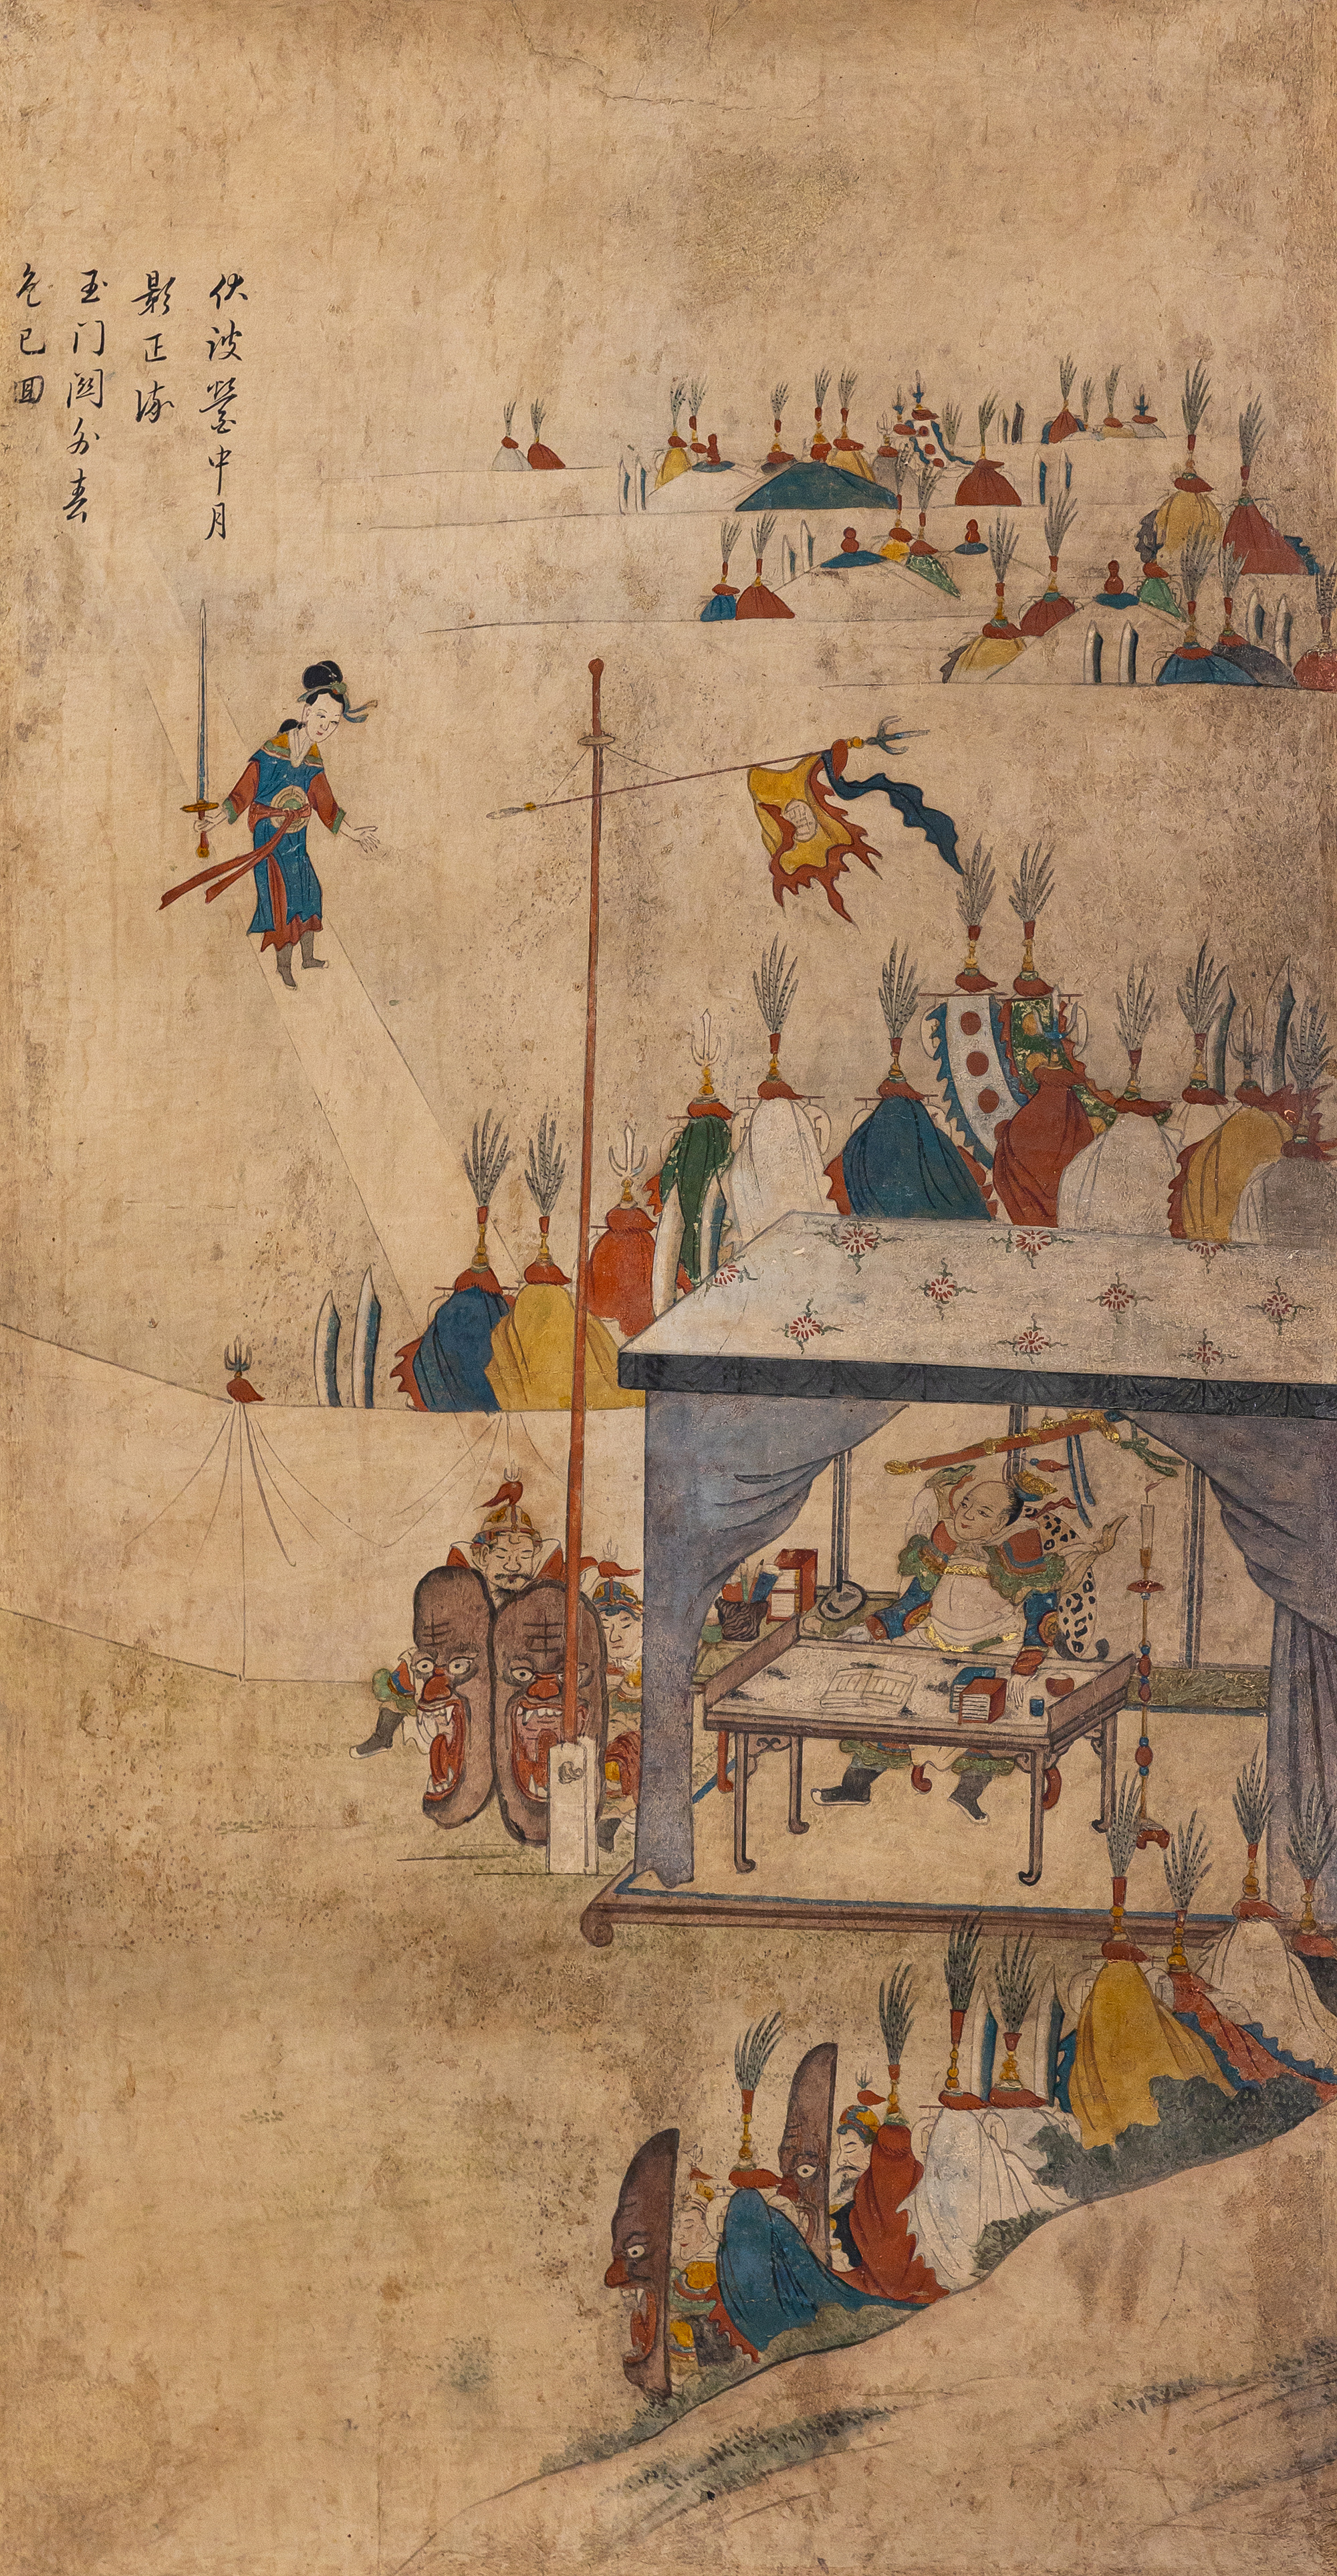 伏波營中月
影正
玉门關外春
色已回